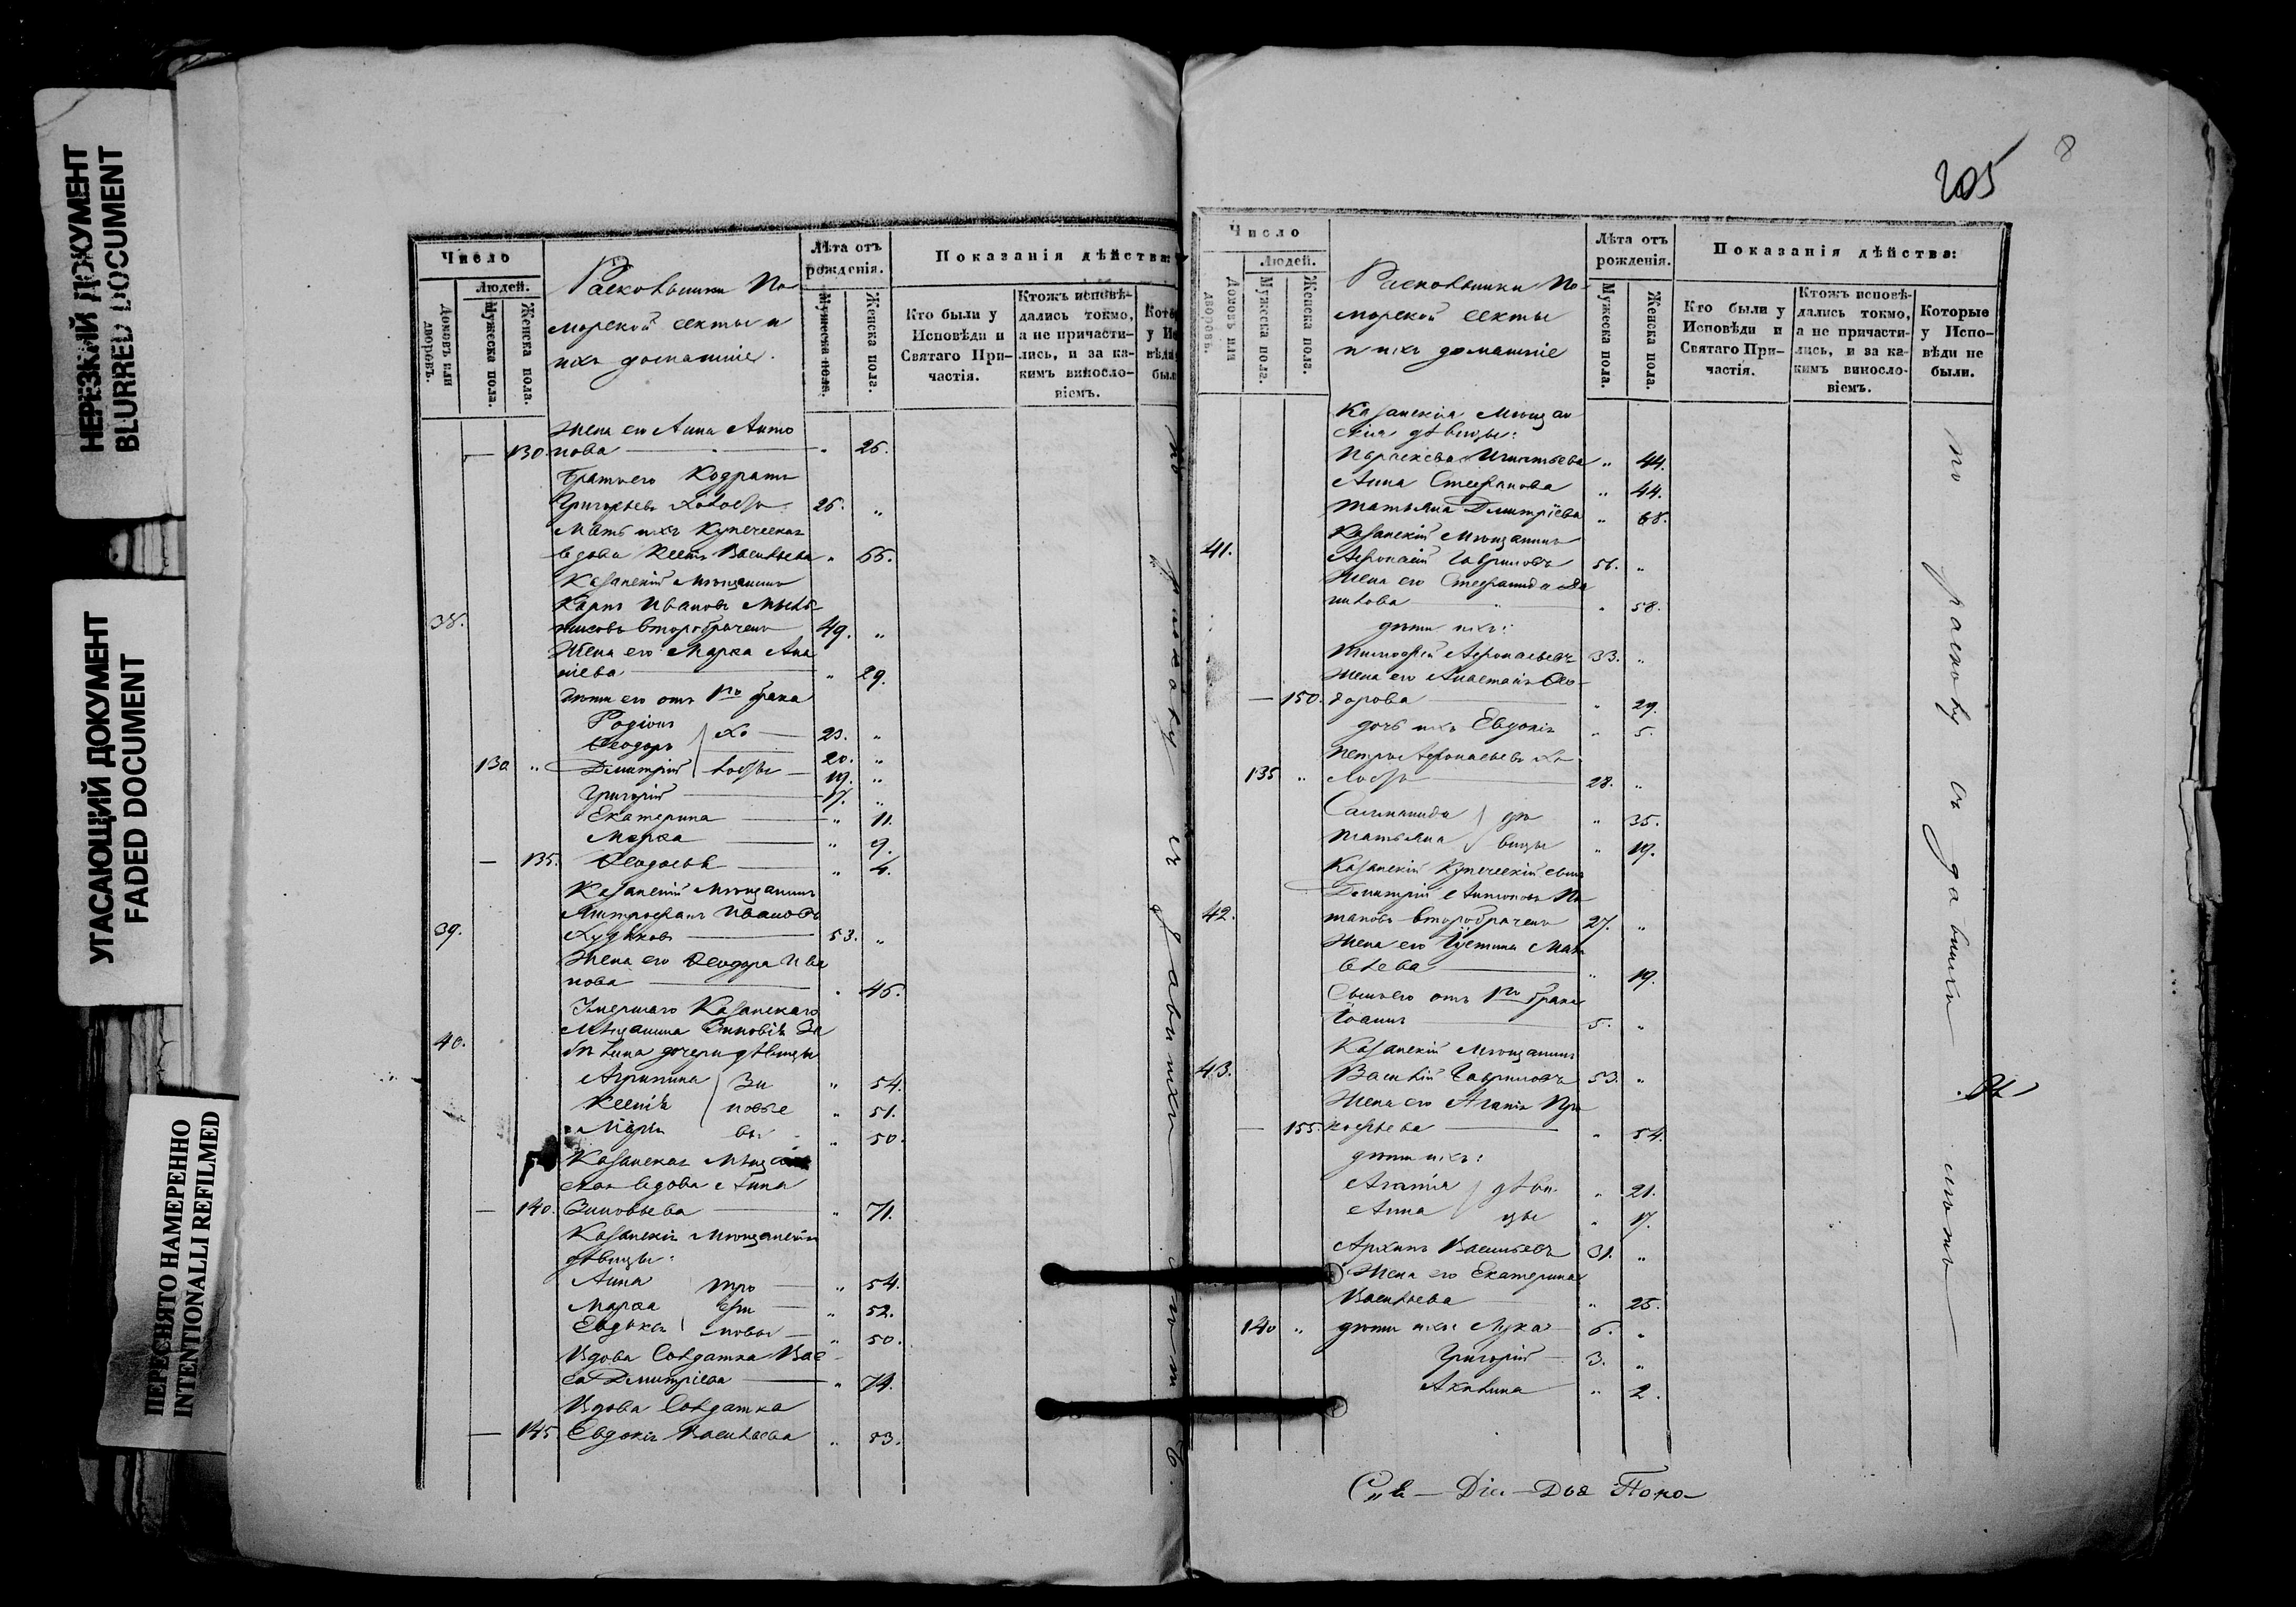 НЕРЕЗКИЙ ДОКУМЕНТ
BLURRED DOCUMENT
УГАСАЮЩИЙ ДОКУМЕНТ
FADED DOCUMENT
ПЕРЕСНЯТО НАМЕРЕННО
INTENTIONALLI REFILMED
Число
Людей.
Домовъ или дворовъ.
Мужеска пола.
Женска пола.
Раскольники По-
морской секты и
ихъ домашніе.
Лѣта отъ рожденія.
Мужеска пола.
Женска пола.
Показанія дѣйства:
Кто были у Исповѣди и Святаго При- частія.
Ктожъ исповѣ- дались токмо, а не причасти- лись, и за ка- кимъ винословіемъ.
Жена его Анна Анто
— 130. нова — " 26.
Братъ его Кодратъ
Григорьевъ 26. "
Мать ихъ Купеческая
вдова Васильева " 66.
Казанскій Мѣщанинъ
Карпъ Ивановъ
38. второбраченъ 49. "
Жена его Марѳа Ана
ніева " 29.
Дѣти его отъ 1го брака
Родіонъ Хо — 23. "
Ѳеодоръ 20. "
130 " Димитрій лосты — 19. "
Григорій 17. "
Екатерина " 11.
Марѳа " 9.
— 135. Ѳеодосья " 4.
Казанскій Мѣщанинъ
Митрофанъ Ивановъ
39. Худяковъ 53. "
Жена его Ѳеодора Ива
нова " 46.
Умершаго Казанскаго
Мѣщанина Зиновія За
40. дочери дѣвицы
Агрипина Зи " 54.
Ксенія новье " 51.
Марья вы " 50.
Казанская Мѣщан
ская вдова Анна
— 140. Зиновьева " 71.
Казанскія Мѣщанскія
дѣвицы:
Анна Тро — " 54.
Марѳа фи — " 52.
Евдокія мовы — " 50.
Вдова Солдатка Вас
са Димитріева " 74.
Вдова Солдатка
— 145. Евдокія Васильева " 83.
по расколу съ давнихъ лѣтъ.
205
8
Число
Людей.
Домовъ или дворовъ.
Мужеска пола.
Женска пола.
Раскольники По-
морской секты
и ихъ домашніе
Лѣта отъ рожденія.
Мужеска пола.
Женска пола.
Показанія дѣйства:
Кто были у Исповѣди и Святаго При- частія.
Ктожъ исповѣ- дались токмо, а не причасти- лись, и за ка- кимъ винословіемъ.
Которые у Испо- вѣди не были.
Казанскія Мѣщан
скія дѣвицы:
Параскева Игнатьева " 44.
Анна Стефанова " 44.
Татьяна Димитріева " 68.
Казанскій Мѣщанинъ
41. Афонасій Гавриловъ 56. "
Жена его Стефанида Да
нилова " 58.
дѣти ихъ:
Тимофей Афонасьевъ 33. "
Жена его Анастасія Ѳео-
— 150. дорова " 29.
дочь ихъ Евдокія " 5.
Петръ Афонасьевъ Хо
135 " лостъ 28. "
Саломанида дѣ " 35.
Татьяна вицы " 19.
Казанскій Купеческій сынъ
Димитрій Антоновъ По
42. таповъ второбраченъ 27. "
Жена его Устинья Мат
вѣева " 19.
Сынъ его отъ 1го брака
Іоаннъ 5. "
Казанскій Мѣщанинъ
43. Василій Гавриловъ 53. "
Жена его Агапія Про
— 155. кофьева " 54.
дѣти ихъ:
Агапія дѣви " 21.
Анна цы " 17.
Архипъ Васильевъ 31. "
Жена его Екатерина
Васильева " 25.
140 " дѣти ихъ Лука 6. "
Григорій 3. "
Акилина " 2.
по расколу съ давнихъ лѣтъ